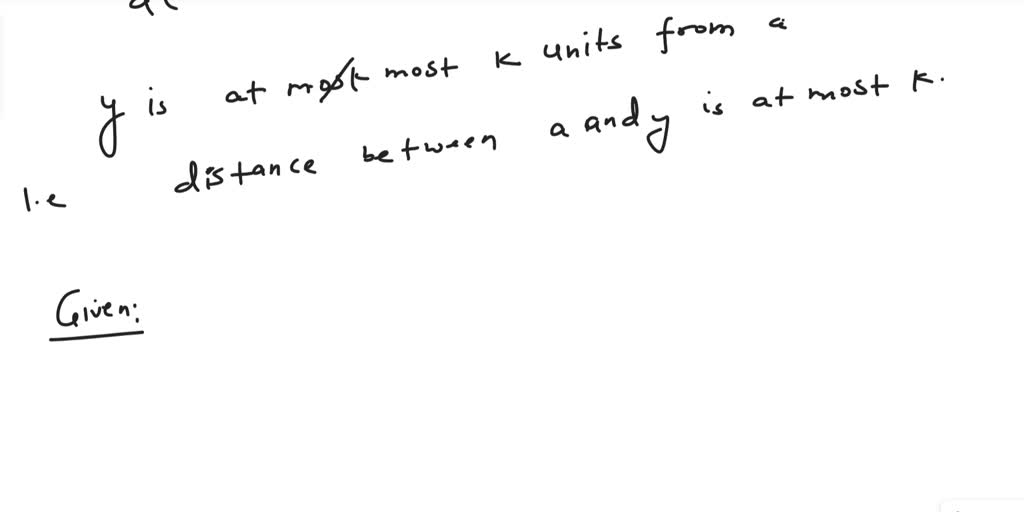 y is at most k units from a
I.e distance between a and y is at most k.
Given: